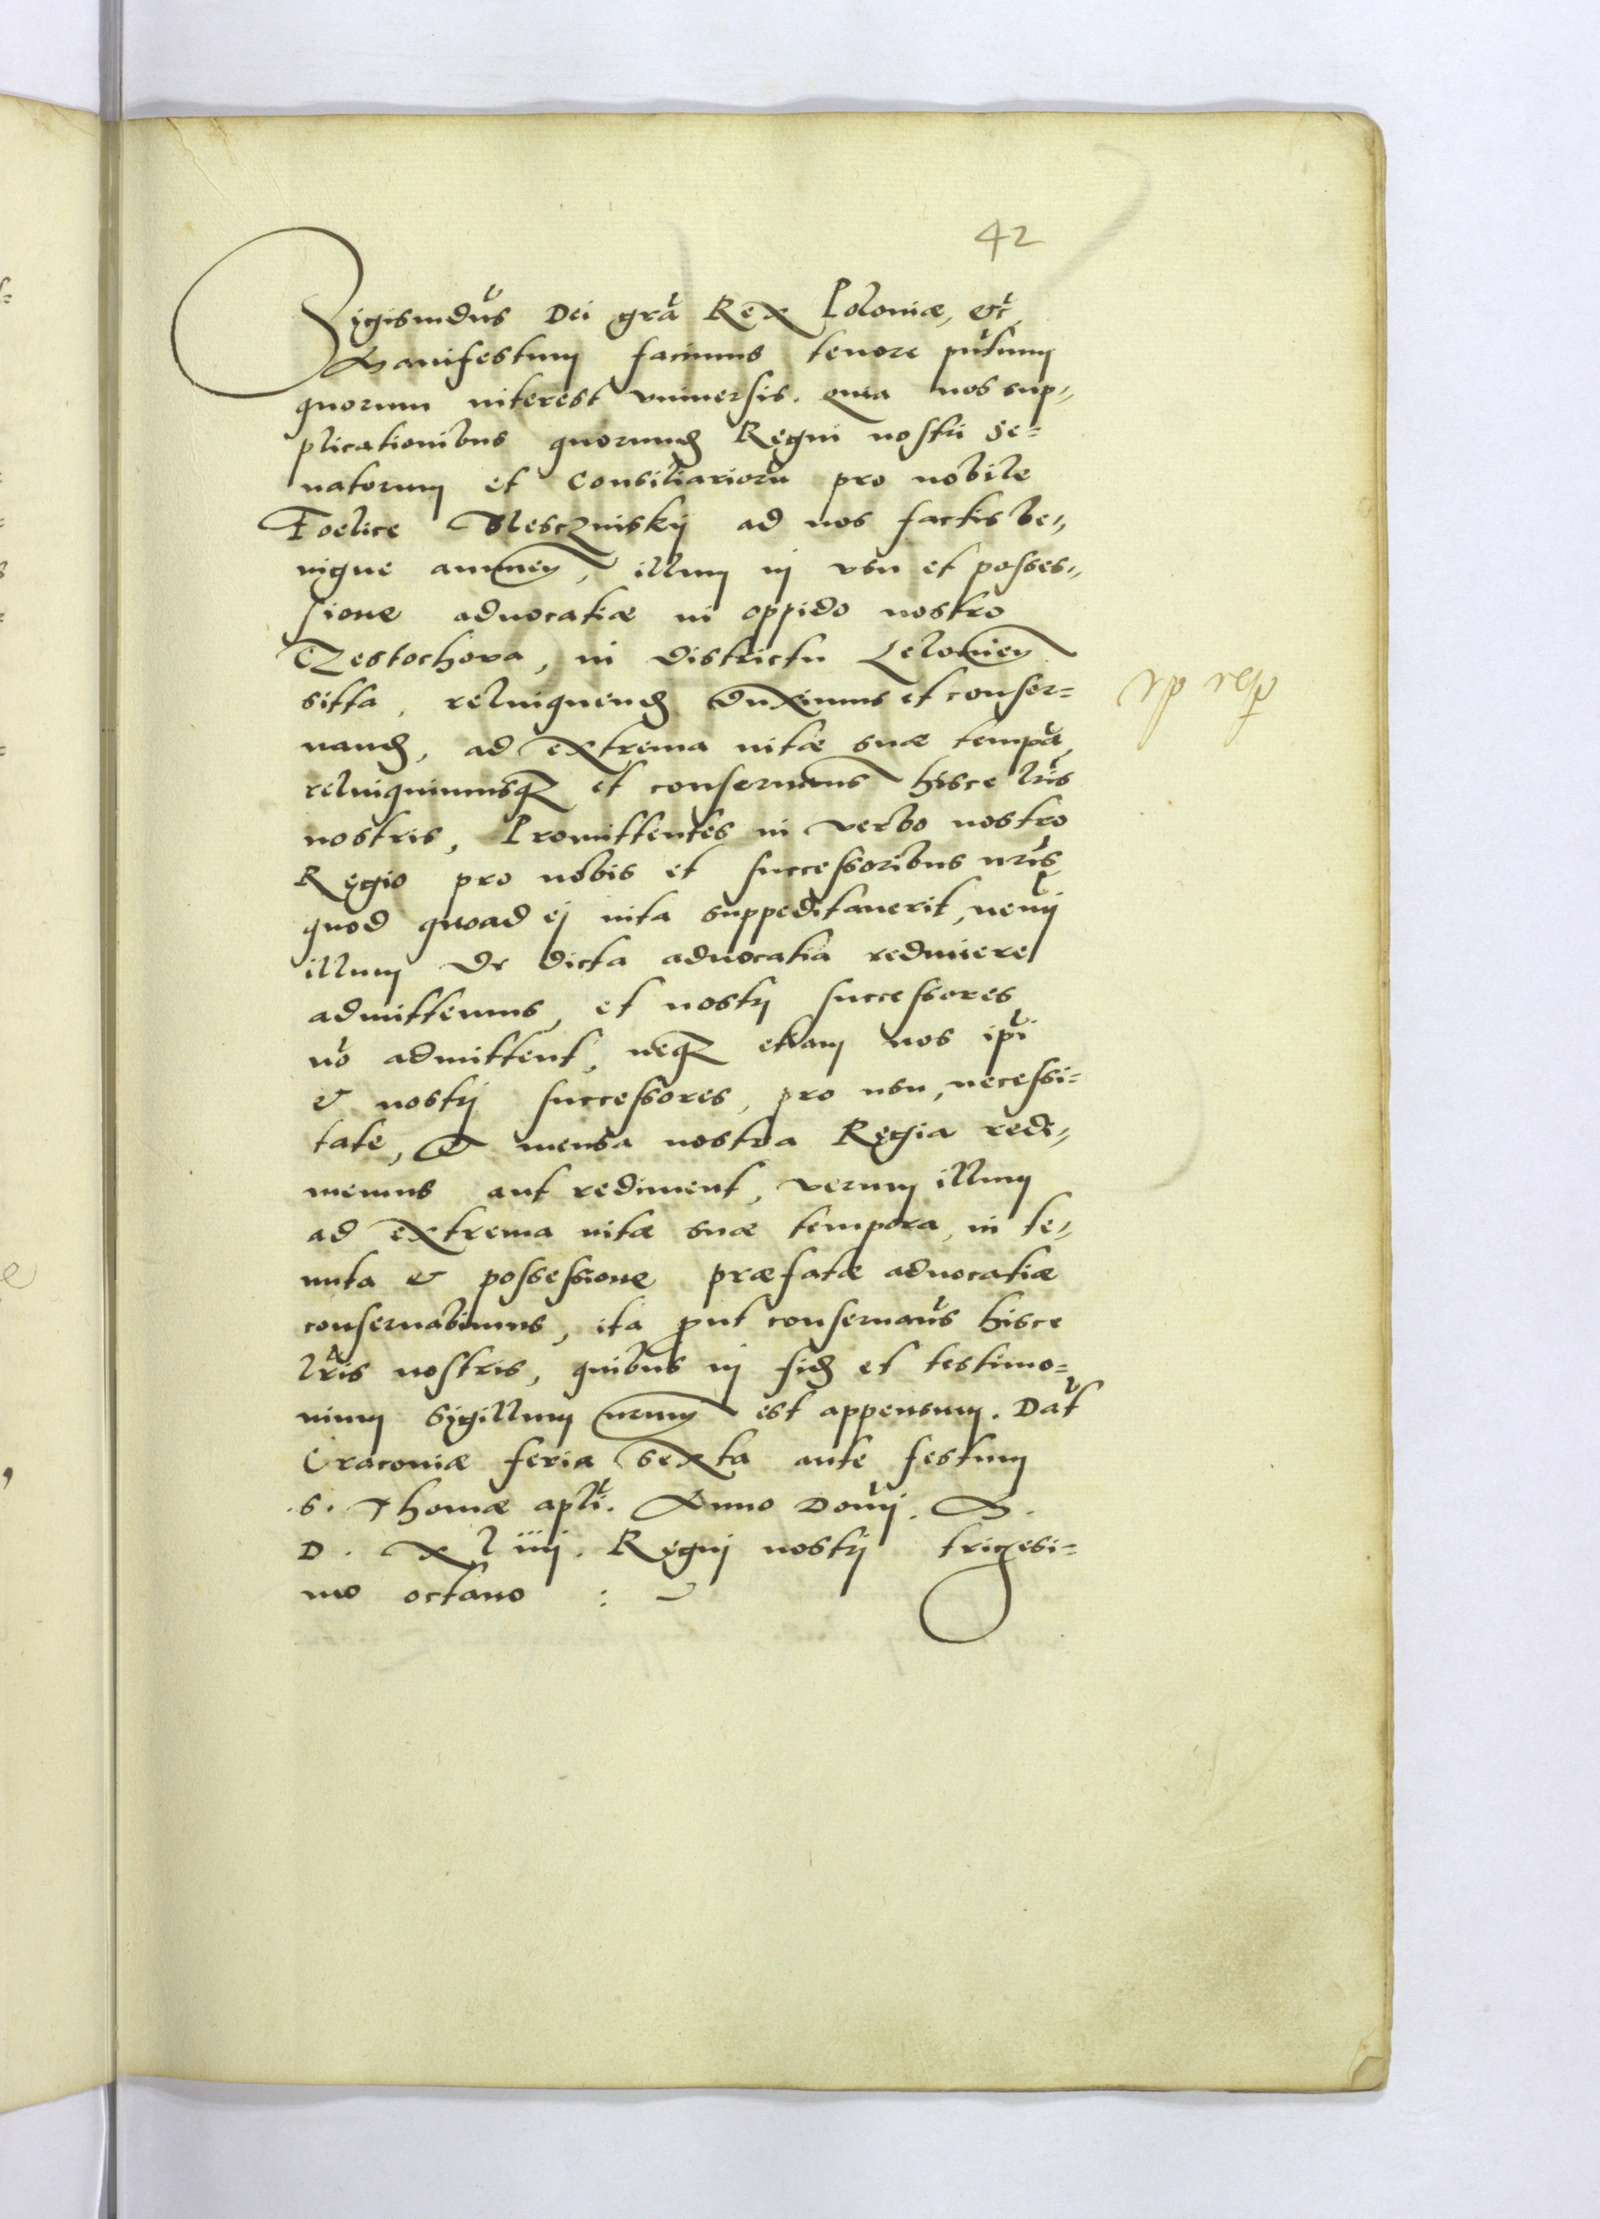 42
Sigismdus Dei gra Rex Poloniæ, etc
Manifestum facimus tenore pntium
quorum interest vniuersis. quia nos sup-
plicationibus quorund Regni nostri Se=
natorum et Consiliarioru pro nobile
Foelice Mesczinskij ad nos factis be-
nigne annuen, illum in vsu et posses-
sione aduocatiæ in oppido nostro
Czestochova, in districtu Lelouien
sitta, relinquend duximus et conser=
uand, ad extrema vitæ suæ tempa,
relinquimusq et conseruamus hisce lris
nostris, Promittentes in verbo nostro
Regio pro nobis et successoribus nris
quod quoad ei vita suppeditauerit, nemij
illum de dicta aduocatia redimere
admittemus, et nostrj successores
no admittent, neq etiam nos ipi
& nostrj successores, pro usu, necessi=
tate, & mensa nostra Regia redi-
memus aut rediment, verum illum
ad extrema vitæ suæ tempora, in te-
nuta & possessione præfatæ aduocatiæ
conseruabimus, ita put conseruaus hisce
lris nostris, quibus in fid et testimo=
nium Sigillum nrum est appensum. Dat
Cracoviæ feria sexta ante festum
.S. Thomæ apli. Anno Domj. M.
D. X l iiij. Regnj nostrj trigesi=
mo octauo :